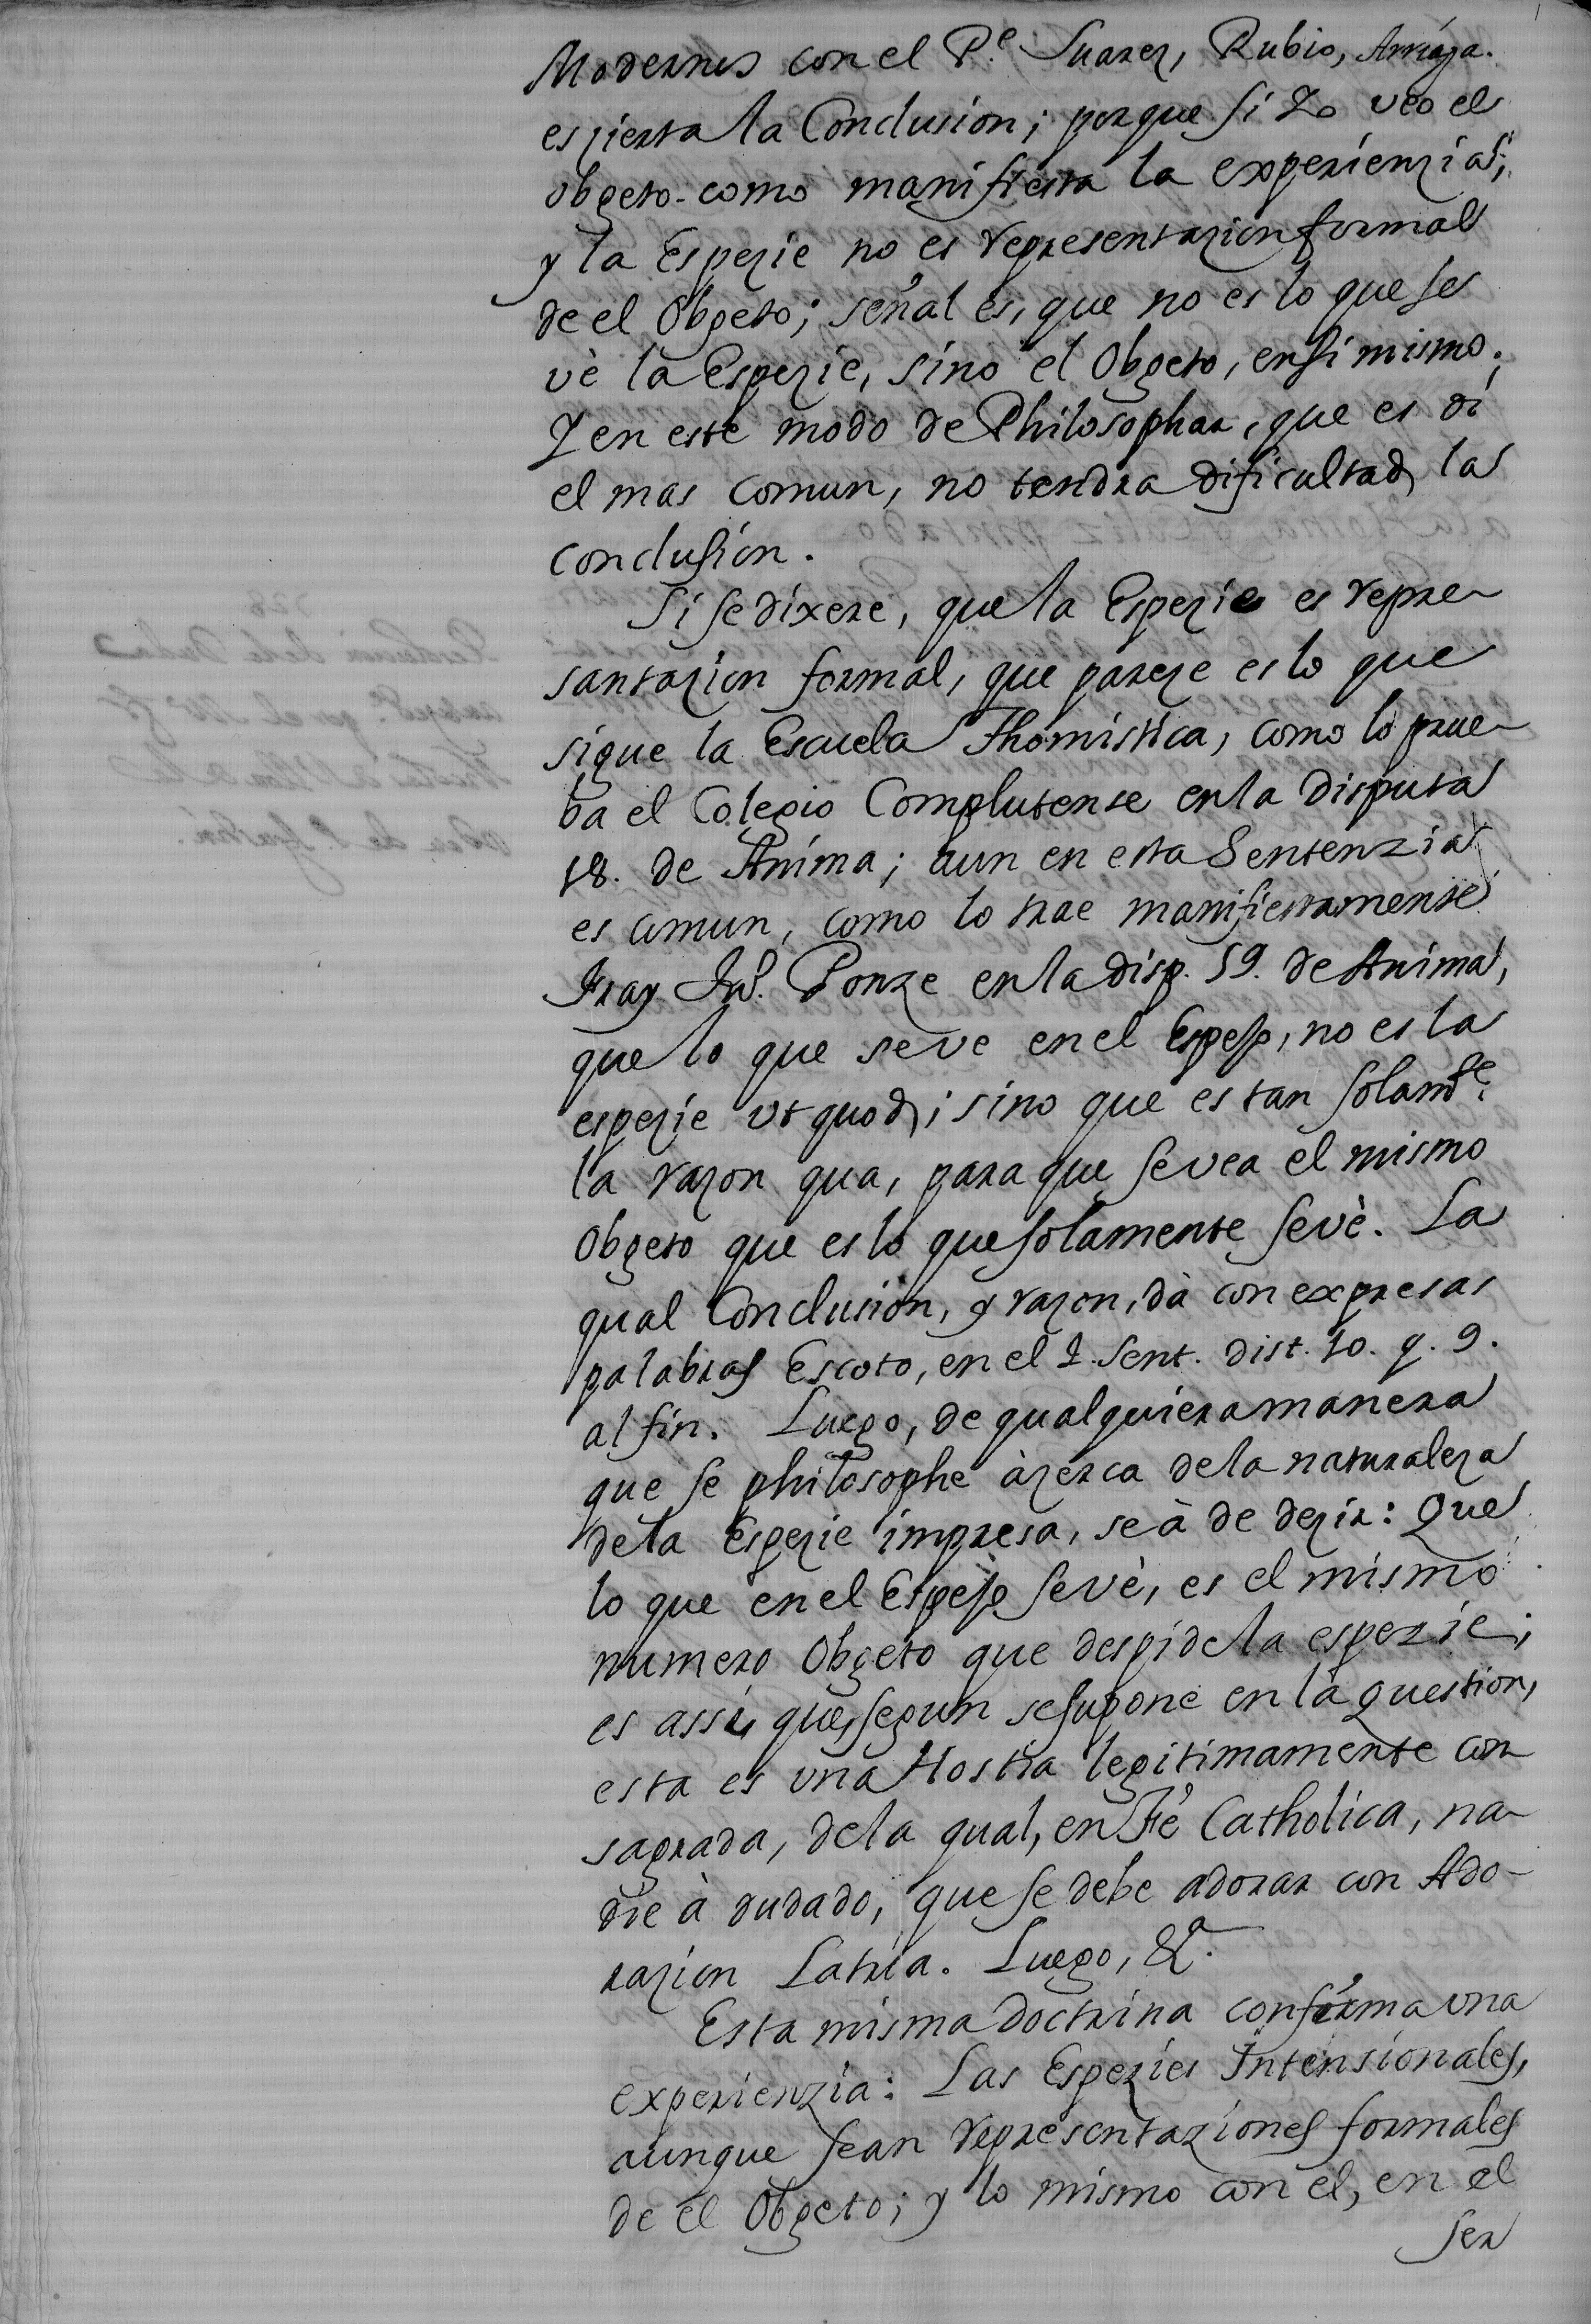 Modernos con el P.e Suarez, Rubio, Arriaga.
es zierta la Conclusion; porque si Yo veo el
obgeto como manifiesta la experienzia;
y la Espezie no es representazion formal
de el Obgeto; señal es, que no es lo que se
vè la Espezie, sino el Obgeto, en si mismo.
Y en este modo de Philosophar, que es oi
el mas comun, no tendra dificultad la
conclusion.
Si se dixere, que la Espezie es repre-
santazion formal, que pareze es lo que
sigue la Escuela Thomistica, como lo prue-
ba el Colegio Complutense en la disputa
18. de Anima; aun en esta Sentenzia
es comun, como lo trae manifiestamente
Fray Ju.º Ponze en la disp. 59. de Anima,
que lo que se ve en el Espejo, no es la
espezie ut quod; sino que es tan solam.te
la razon qua, para que se vea el mismo
Obgeto que es lo que solamente se vè. La
qual Conclusion, y razon, dà con expresas
palabras Escoto, en el 4. Sent. dist. 10. q. 9.
al fin. Luego, de qualquiera manera
que se philosophe àzerca de la naturaleza
de la Espezie impresa, se à de dezir: Que
lo que en el Espejo se vè, es el mismo
numero Obgeto que despide la espezie;
es assi, que, segun se supone en la question,
esta es una Hostia legitimamente con
sagrada, de la qual, en Fè Catholica, na-
die à dudado, que se debe adorar con Ado-
razion Latria. Luego, &a.
Esta misma doctrina confirma una
experienzia: Las Espezies Intensionales,
aunque sean representaziones formales
de el Obgeto; y lo mismo con el, en el
ser